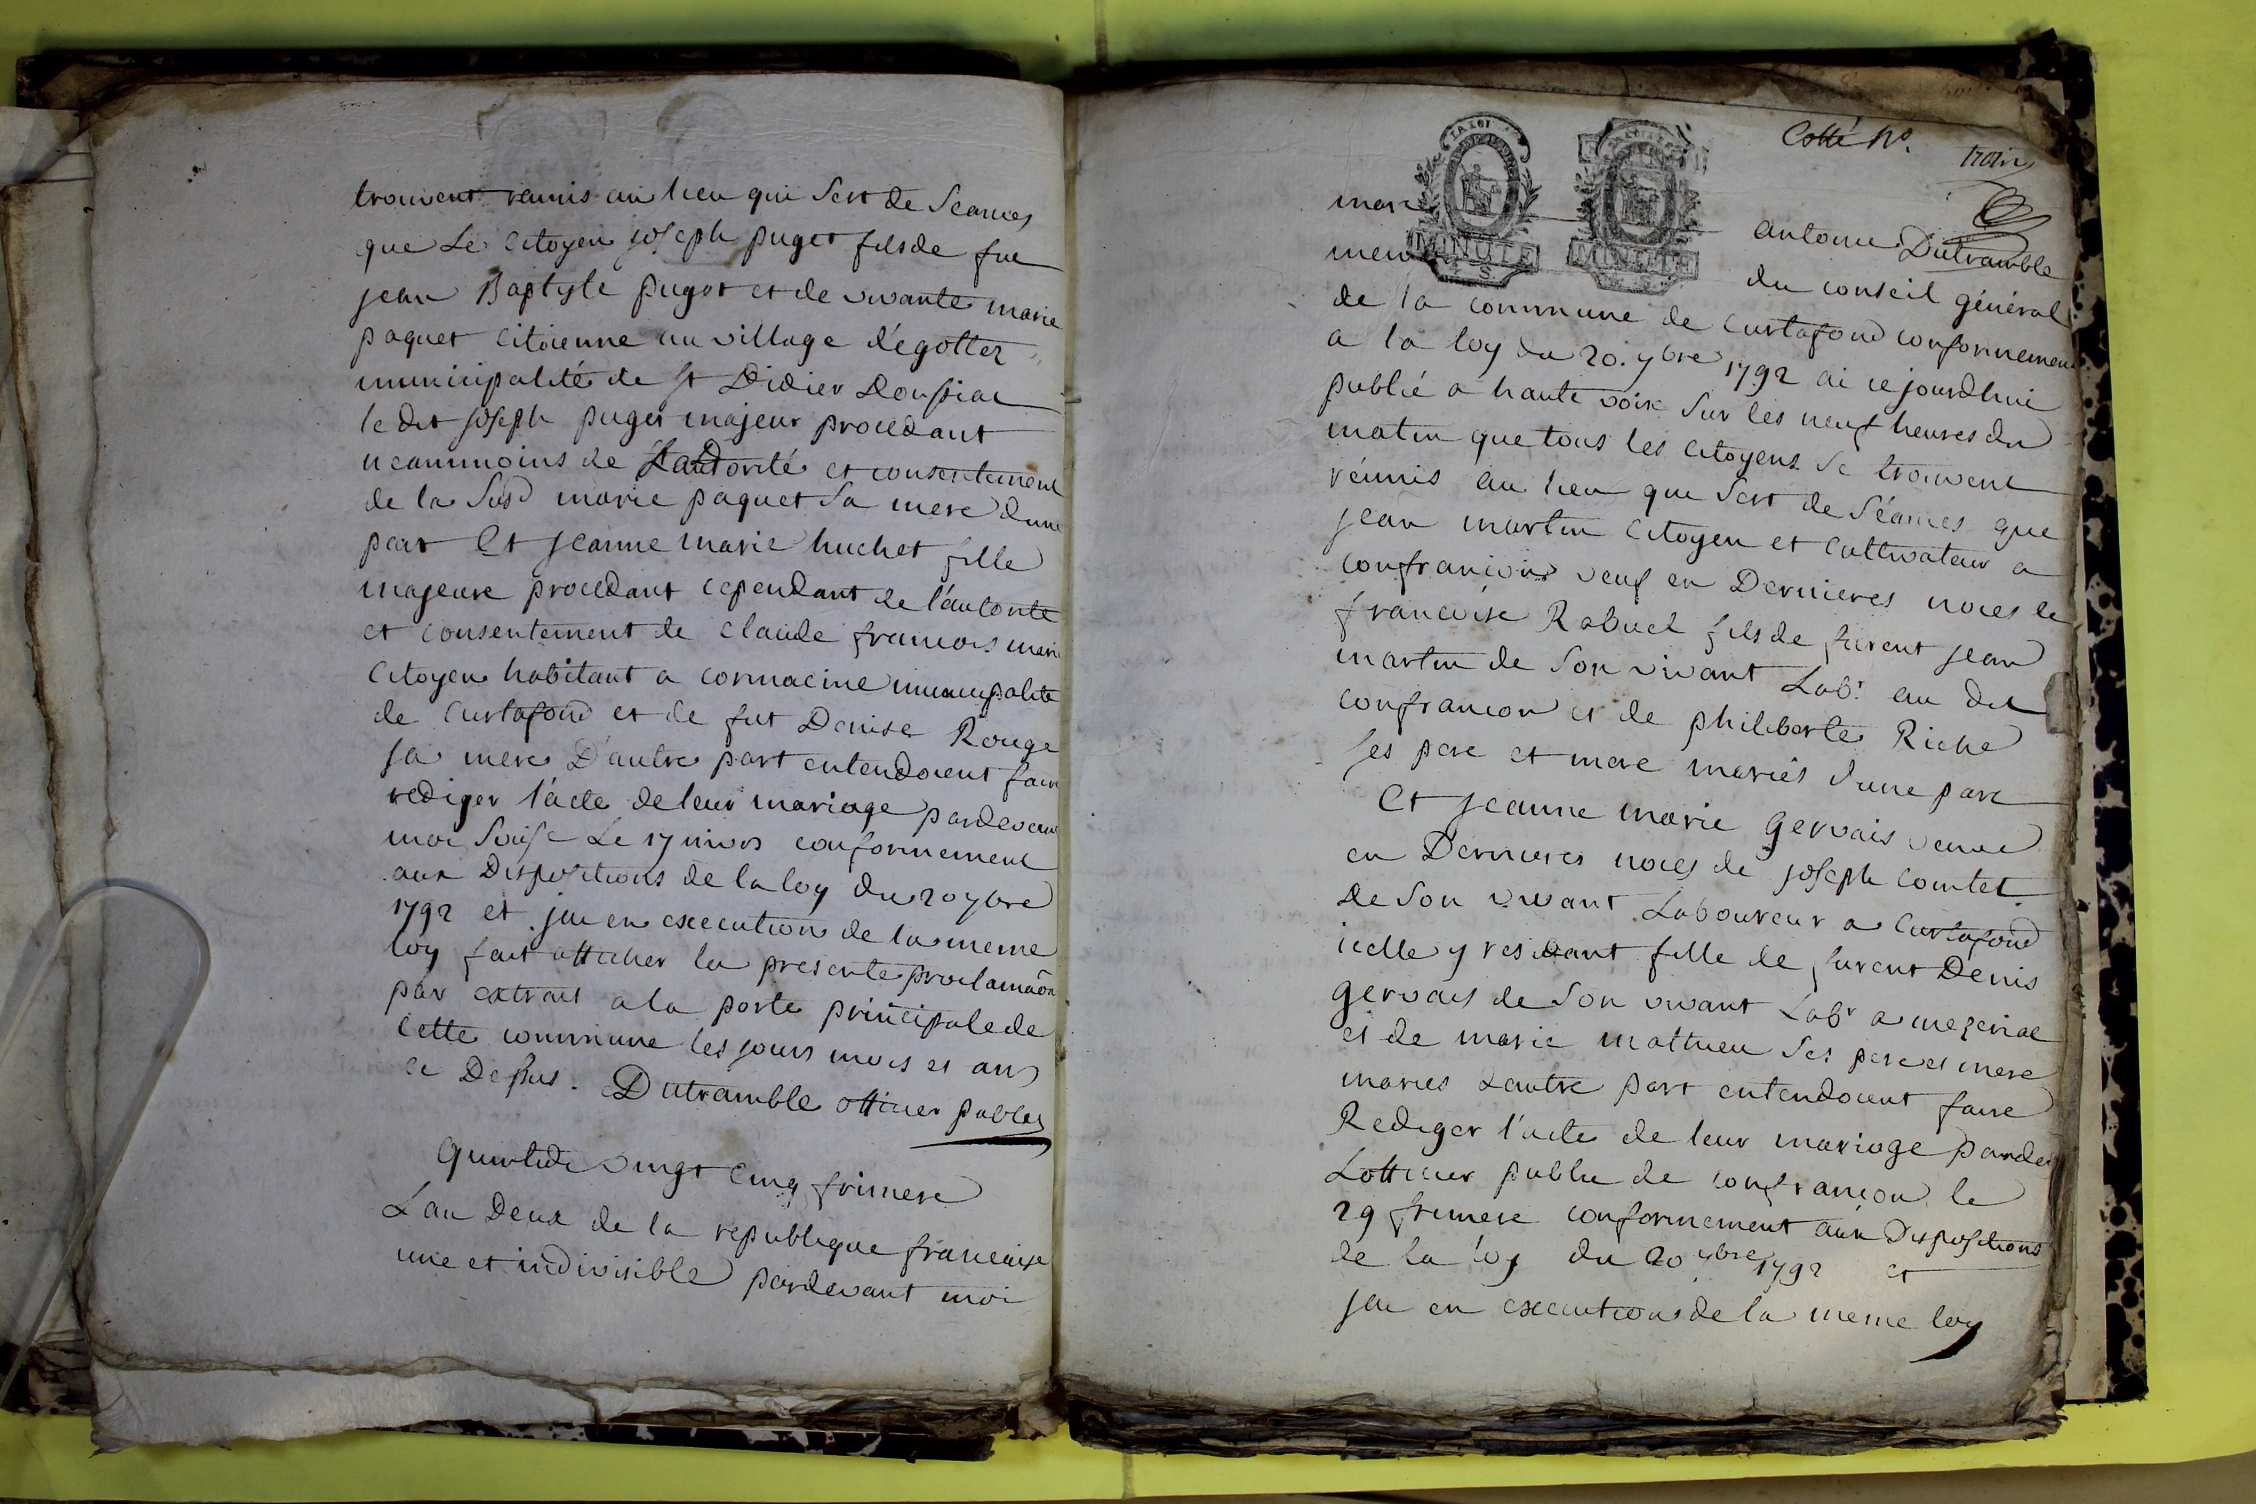 trouvent reunis au lieu qui sert de Seances
que Le Citoyen joseph puget fils de fue
jean Baptyste puget et de vivante marie
paquet citoienne au village d'égottez
municipalité de St Didier Doussiac
le dit joseph puget majeur procedant
neammoins de L'autorité et consentement
de la Susd marie paquet Sa mere d'une
part Et jeanne marie huchet fille
majeure procedant cependant de l'autorite
et consentement de claude francois
Citoyen habitant a cormacine municipalite
de Curtafond et de fut Denise Rouge
Sa mere D'autre part entendoient faire
rediger l'acte de leur mariage pardevant
moi Le 17 conformement
aux Dispositions de la loy du 20 7bre
1792 et jai en execution de la meme
loy fait afficher la presente proclamaôn
par extrait a la porte principale de
cette commune les jours mois et an
ci Dessus. Dutramble officier public
Quintidi vingt cinq frimere
L'an Deux de la republique francaise
une et indivisible pardevant moi
Cotté No.
antoine Dutramble
du conseil général
de la commune de Curtafond conformement
a la loy du 20. 7bre 1792 ai cejourdhui
publié a haute voix Sur les neuf heures du
matin que tous les citoyens Se trouvent
réunis au lieu qui Sert de Séances que
jean martin Citoyen et Cultivateur a
confrancon veuf en Dernieres noces de
francoise Rabuel fils de furent jean
martin de Son vivant Labr. au dit
confrancon et de philiberte Riche
Ses pere et mere mariés d'une part
Et jeanne marie gervais veuve
en Dernieres noces de joseph comtet
de Son vivant Laboureur a Curtafond
icelle y residant fille de furent Denis
gervais de Son vivant Labr a mezeriat
et de marie mathieu Ses pere et mere
maries L'autre part entendoient faire
Rediger l'acte de leur mariage pardev
L'officier public de confrancon le
29 frimere conformement aux Dispositions
de la loy du 20 7bre 1792 et
jai en execution de la meme loy
MINUTE
MINUTE
LA LOI